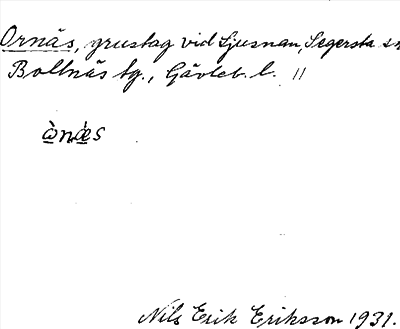 Ornäs, grustag vid Ljusnan, Segersta sn
Bollnäs tg., Gävleb. l. 11
ὰnǽs
Nils Erik Eriksson 1931.